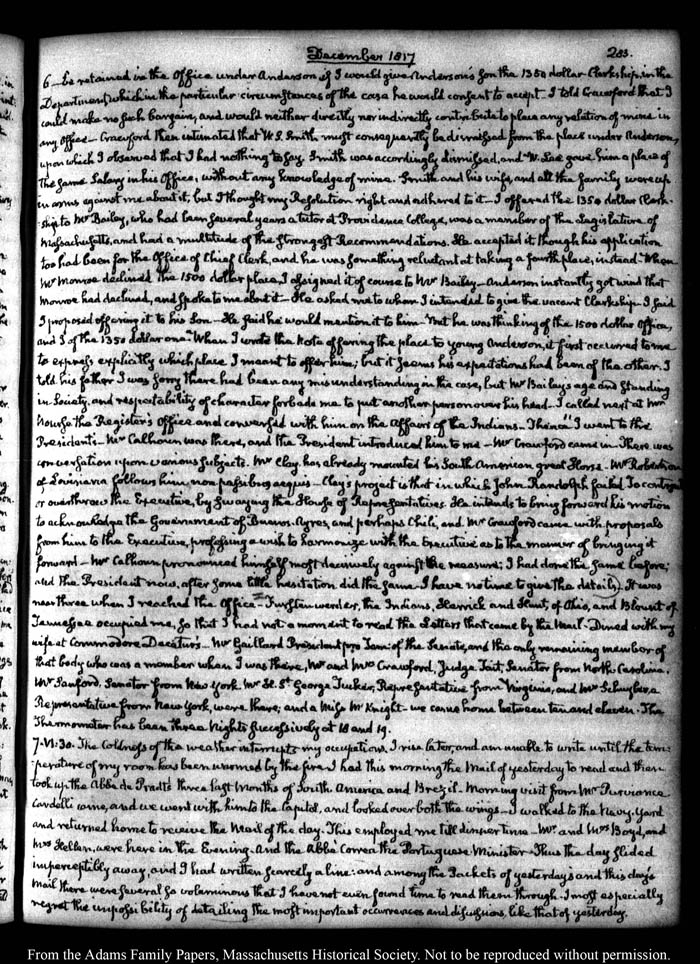 December 1817
283.
6— be retained in the Office under Anderson if I would give Anderson's Son the 1350 dollar Clerkship in the
Department, which in the particular circumstances of the case he would consent to accept. I told Crawford that I
could make no such bargain, and would neither directly nor indirectly contribute to place any relation of mine in
any Office— Crawford then intimated that W. S. Smith must consequently be dismissed from the place under Anderson,
upon which I observed that I had nothing to say. Smith was accordingly dismissed, and Mr. Lee gave him a place of
the same Salary in his Office, without any knowledge of mine. Smith and his wife, and all the family were up
in arms against me about it; but I thought my Resolution right and adhered to it— I offered the 1350 dollar Clerk-
ship to Mr Bailey, who had been several years a tutor at Providence College, was a member of the Legislature of
Massachusetts, and had a multitude of the strongest Recommendations. He accepted it though his application
too had been for the Office of Chief Clerk, and he was something reluctant at taking a fourth place, instead. When
Mr Monroe declined the 1500 dollar place, I assigned it of course to Mr Bailey— Anderson instantly got wind that
Monroe had declined, and spoke to me about it— He asked me to whom I intended to give the vacant Clerkship. I said
I proposed offering it to his Son— He said he would mention it to him— But he was thinking of the 1500 dollar Office,
and I of the 1350 dollar one. When I wrote the Note offering the place to young Anderson, it first occurred to me
to express explicitly which place I meant to offer him; but it seems his expectations had been of the other. I
told his father I was sorry there had been any misunderstanding in the case, but Mr Bailey's age and standing
in Society, and respectability of character forbade me to put another person over his head— I called next at Mr
Nourse the Register's Office and conversed with him on the Affairs of the Indians. Thence I went to the
President's— Mr Calhoun was there, and the President introduced him to me— Mr Crawford came in— There was
conversation upon various subjects. Mr Clay has already mounted his South American great Horse— Mr Robertson
of Louisiana follows him, non passibus aequis— Clay's project is that in which John Randolph failed, To control
or overthrow the Executive, by swaying the House of Representatives. He intends to bring forward his motion
to acknowledge the Government of Buenos-Ayres, and perhaps Chili, and Mr Crawford came with proposals
from him to the Executive, professing a wish to harmonize with the Executive as to the manner of bringing it
forward— Mr Calhoun pronounced himself most decisively against the measure; I had done the same before;
and the President now, after some little hesitation did the same— I have no time to give the details. It was
near three when I reached the Office— Furstenwerder, the Indians, Herrick and Hunt, of Ohio, and Blount of
Tennessee occupied me, so that I had not a moment to read the Letters that came by the Mail. Dined with my
wife at Commodore Decatur's— Mr Gaillard President pro Tem: of the Senate, and the only remaining member of
that body who was a member when I was there, Mr and Mrs Crawford, Judge Tait, Senator from North Carolina.
Mr Sanford, Senator from New York Mr H. St George Tucker, Representative from Virginia, and Mr Schuyler, a
Representative from New York, were there; and a Miss McKnight— we came home between ten and eleven. The
Thermometer has been three Nights successively at 18 and 19.
7. VI:30. The coldness of the weather interrupts my occupations. I rise later, and am unable to write until the tem-
perature of my room has been warmed by the fire. I had this morning the Mail of yesterday to read and then
took up the Abbé de Pradt's three last Months of South America and Brezil. Morning visit from Mr Purviance
Cardelli came, and we went with him to the Capitol, and looked over both the wings— I walked to the Navy-Yard
and returned home to receive the Mail of the day. This employed me till dinner time— Mr and Mrs Boyd, and
Mrs Hellen, were here in the Evening. And the Abbé Correa the Portuguese Minister— Thus the day glided
imperceptibly away, and I had written scarcely a line: and among the Packets of yesterday's and this day's
Mail there were several so voluminous that I have not even found time to read them through. I most especially
regret the impossibility of detailing the most important occurrences and discussions, like that of yesterday.
From the Adams Family Papers, Massachusetts Historical Society. Not to be reproduced without permission.